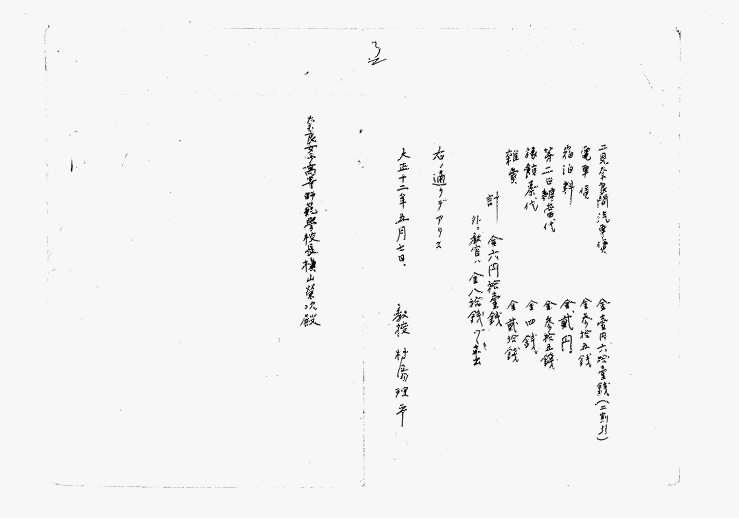 二見奈良間汽車賃　金壹円六拾壹銭(二割引)
電車賃　金参拾五銭
宿泊料　金貳円
第二日辨當代　金参拾五銭
旅館茶代　金四銭
雜費　金貳拾銭
計　金六円拾壹銭
外ニ教官ハ金八拾銭
右ノ通リデアリマス
大正十二年五月七日
教授 村島理平
奈良女子高等師範學校長橫山榮次殿